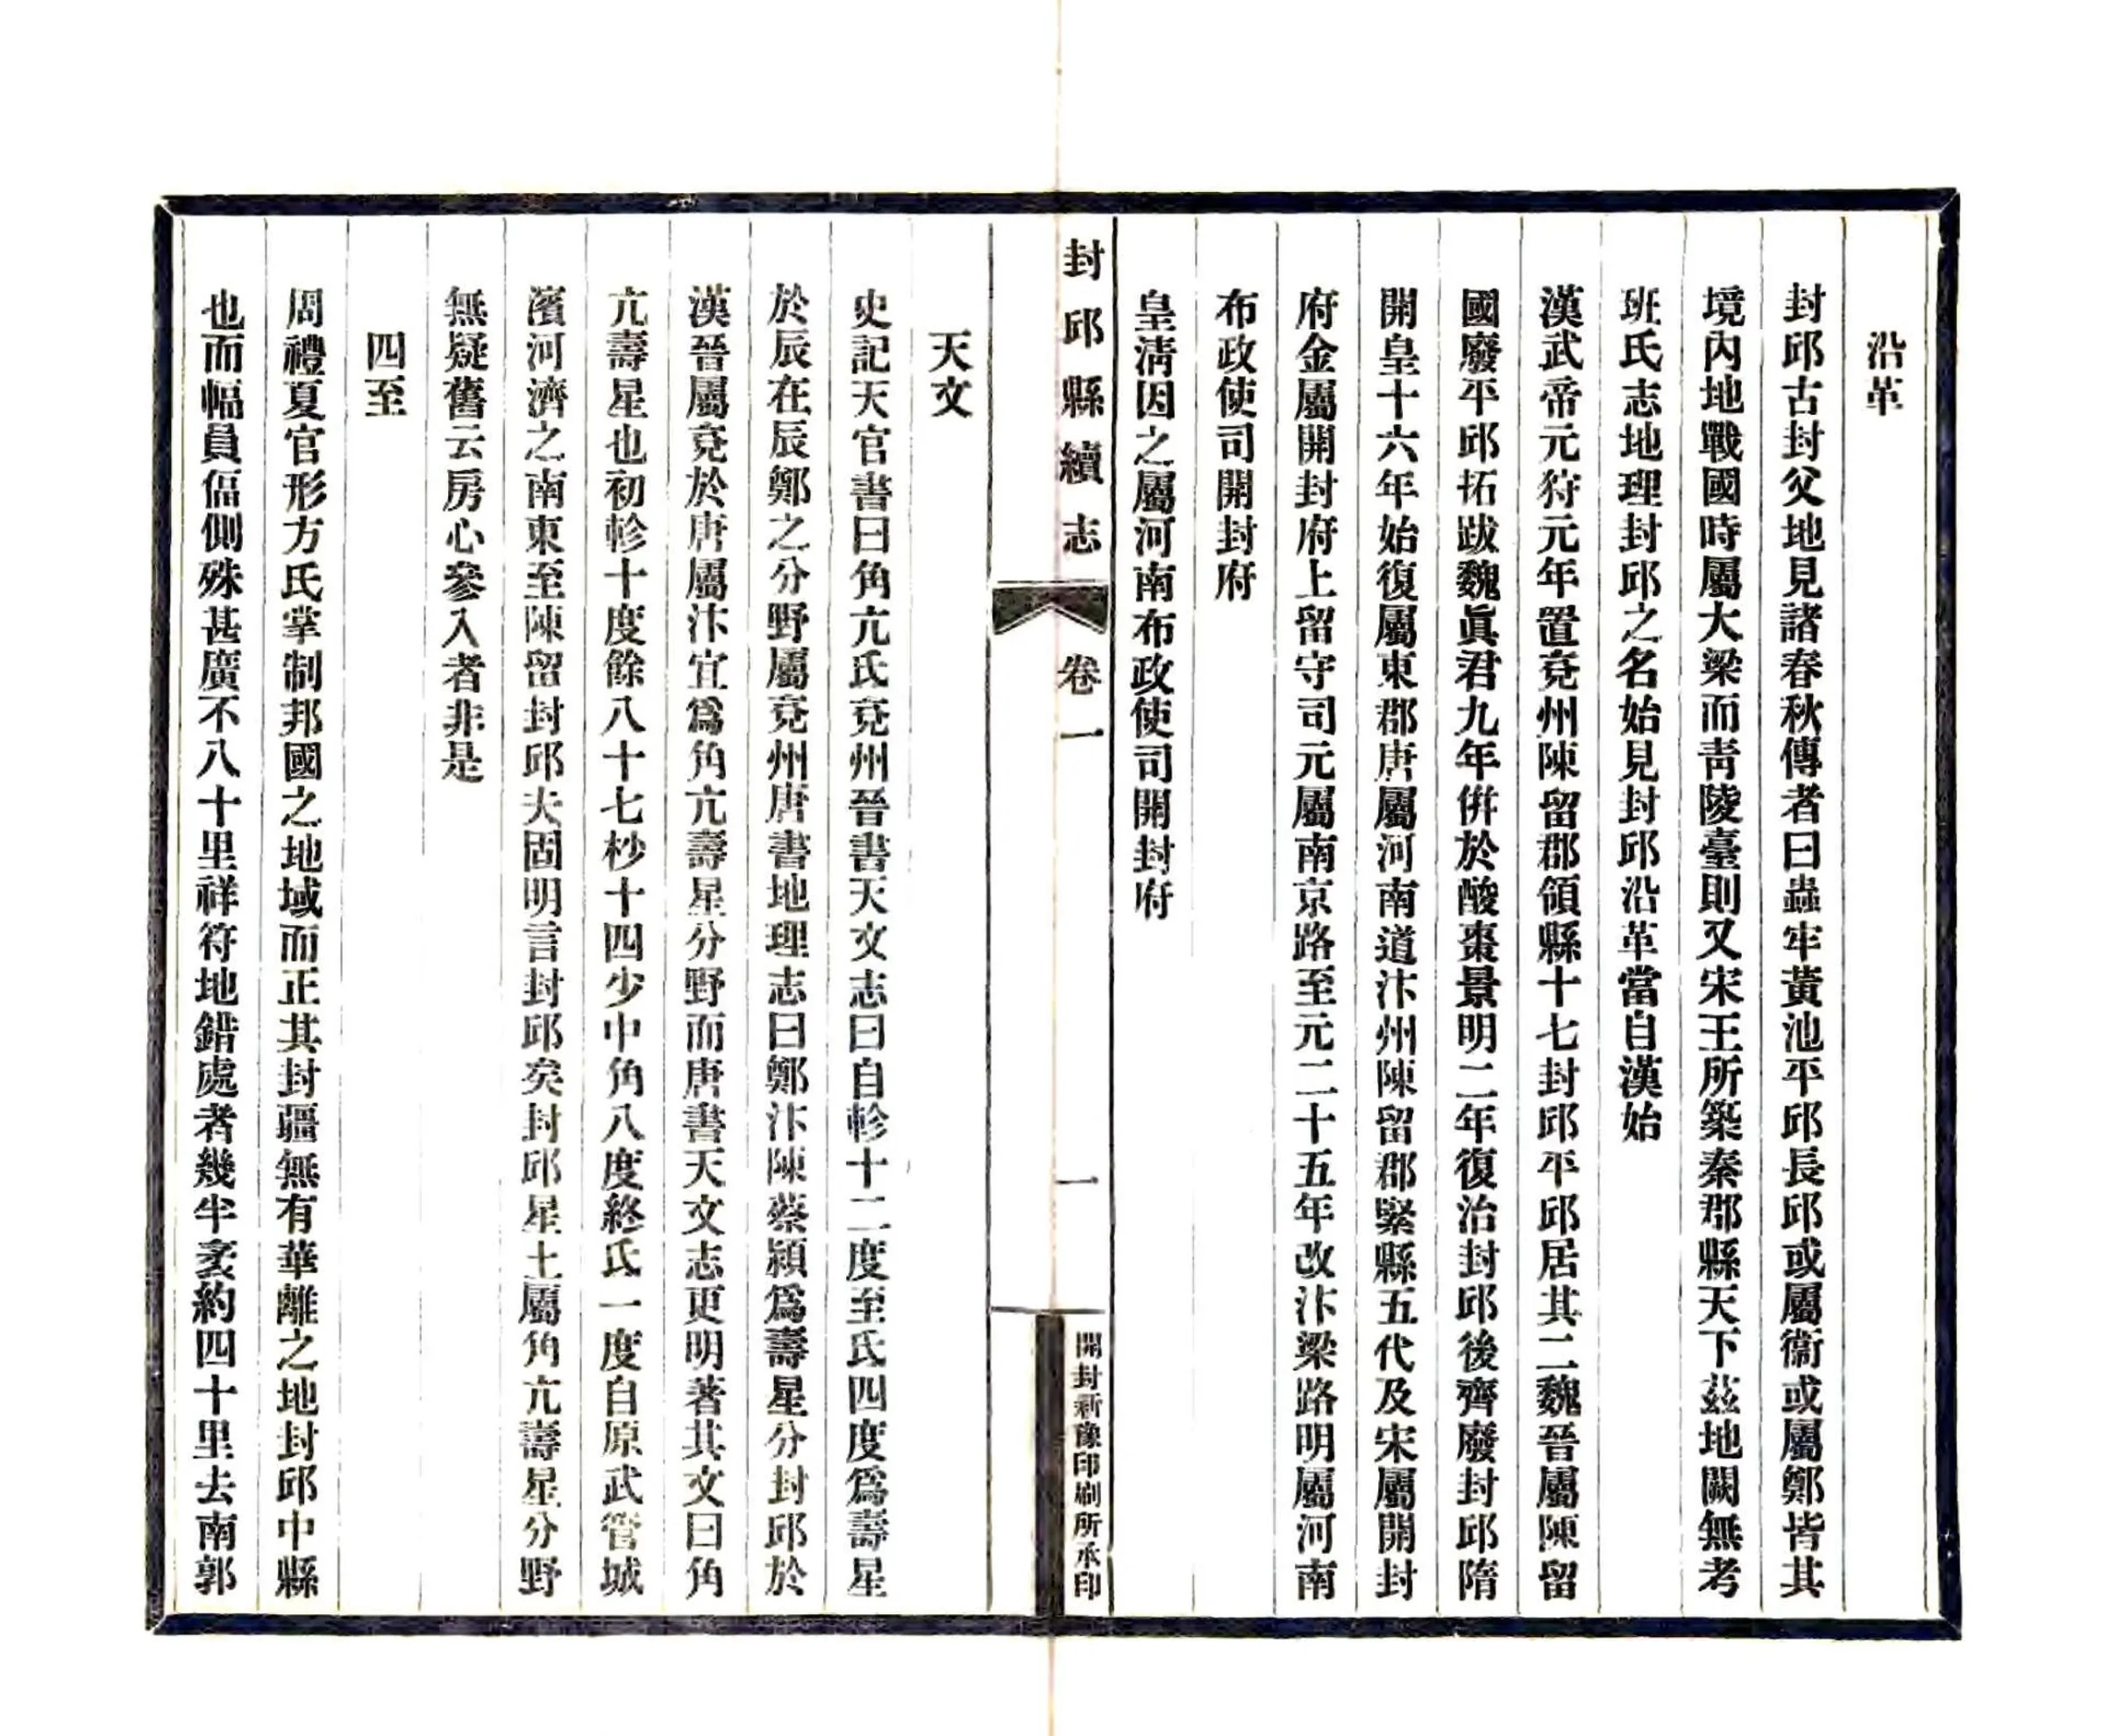 沿革
封邱古封父地見諸春秋傳者曰蟲牢黃池平邱長邱或屬衞或屬鄭皆其
境內地戰國時屬大梁而靑陵臺則又宋王所築秦郡縣天下茲地闕無考
班氏志地理封邱之名始見封邱沿革當自漢始
漢武帝元狩元年置兗州陳留郡領縣十七封邱平邱居其二魏晉屬陳留
國廢平邱拓跋魏眞君九年倂於酸棗景明二年復治封邱後齊廢封邱隋
開皇十六年始復屬東郡唐屬河南道汴州陳留郡緊縣五代及宋屬開封
府金屬開封府上留守司元屬南京路至元二十五年改汴梁路明屬河南
布政使司開封府
皇淸因之屬河南布政使司開封府
封邱縣續志
卷一
一
開封新豫印刷所承印
天文
史記天官書曰角亢氐兗州晉書天文志曰自軫十二度至氐四度爲壽星
於辰在辰鄭之分野屬兗州唐書地理志曰鄭汴陳蔡潁爲壽星分封邱於
漢晉屬兗於唐屬汴宜爲角亢壽星分野而唐書天文志更明著其文曰角
亢壽星也初軫十度餘八十七杪十四少中角八度終氐一度自原武管城
濱河濟之南東至陳留封邱夫固明言封邱矣封邱星土屬角亢壽星分野
無疑舊云房心參入者非是
四至
周禮夏官形方氏掌制邦國之地域而正其封疆無有華離之地封邱中縣
也而幅員偪側殊甚廣不八十里祥符地錯處者幾半袤約四十里去南郭